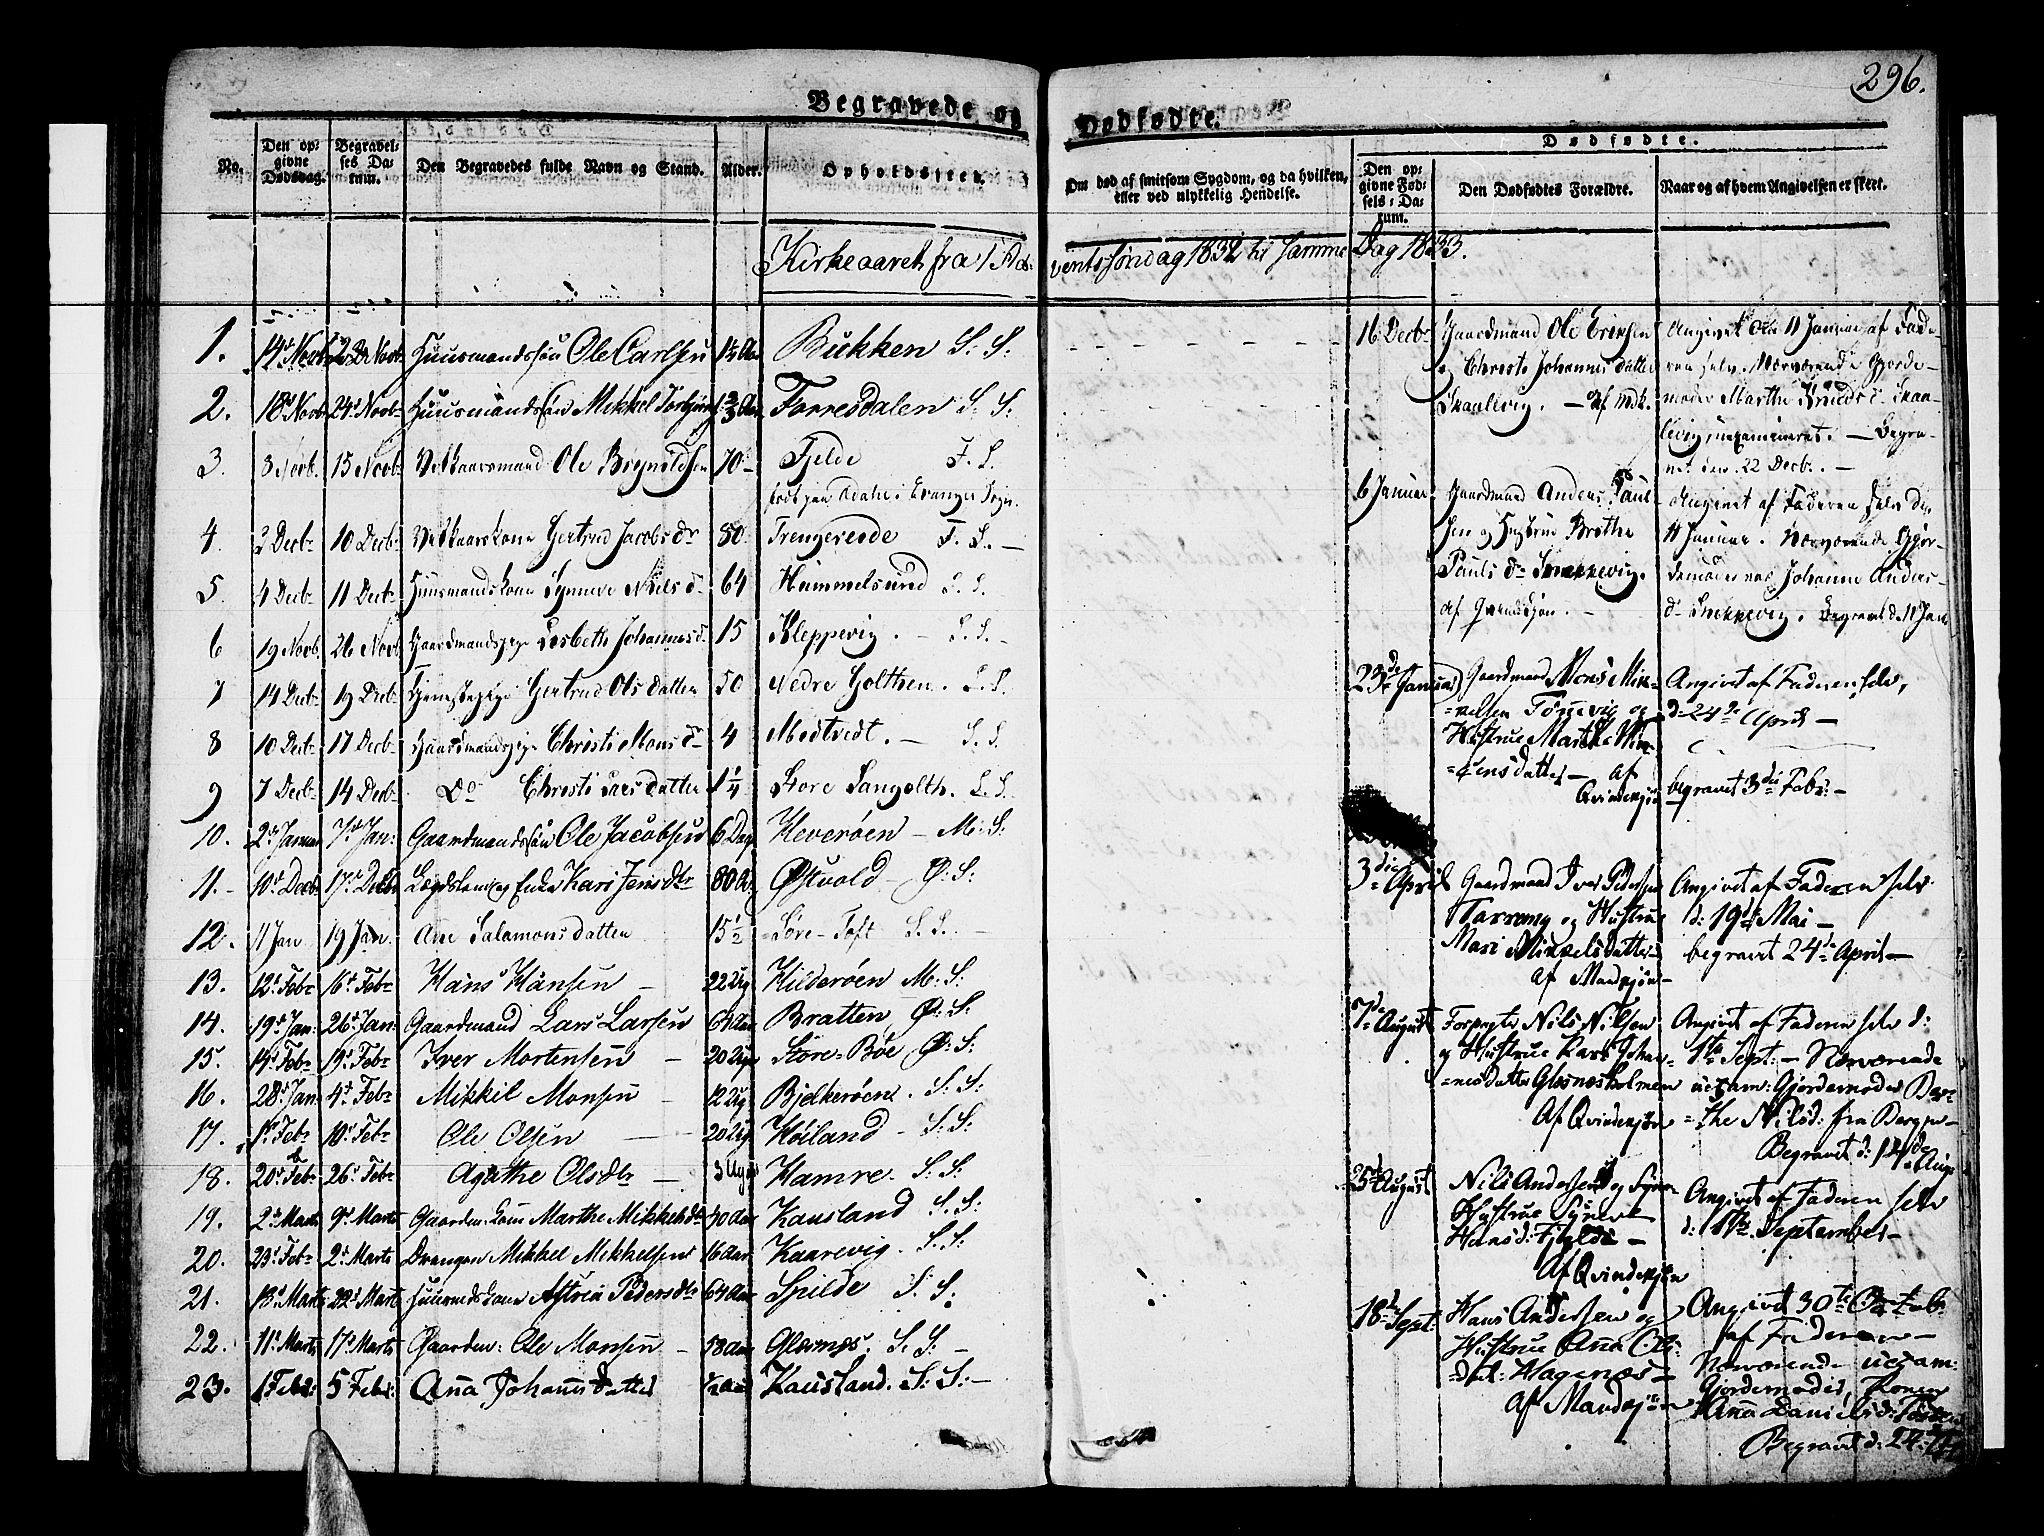 296.
Begravede og Dødfødte.
Dødfødte.
No.
Den op-
givne
Dødsdag.
Begravel-
ses Da-
tum.
Den Begravedes fulde Navn og Stand.
Alder.
Opholdssted.
Om død af smitsom Sygdom, og da hvilken,
eller ved ulykkelig Hendelse.
Den op-
givne Fød-
sels-Da-
tum.
Den Dødfødtes Forældre.
Naar og af hvem Angivelsen er skeet.
Kirkeaaret fra 1 Ad-ventssøndag 1832 til samme Dag 1833.
1. 14d Novb 2d Novb Huusmandssøn Ole Carlsen Bukken S. S:
2. 18d Novb 24d Novb Huusmandssøn Mikkel Torresdalen S. S.
3. 8 Novb. 15 Novb Vilkaarsmand Ole Brynildsen 70 Fjelde F. S.
født paa i Evanger Sogn.
4. 3 Decbr 10 Decbr Vilkaarskone Gertrud Jacobsdr 80 Trengereide F. S. —
5. 4 Decbr 11 Decbr Huusmandskone Synneve Niels d. 64 Hummelsund S. S.
6 19 Novb. 26 Novb Gaardmandspige Lisbeth Johannesd. 15 Kleppevig. — S. S. –
7 14 Decbr 19 Decbr Gertrud Ols datter 50 Nedre Golthen. S. S.
8 10 Decbr 17 Decbr Gaardmandspige Christi Mons dr 4 Midtvedt. — S. S.
9 7 Decbr 14 Decbr Do Christi Lars datter 1 1/4 Store Sangolth. S. S.
10. 2d Januar 7d Jan: Gaardmandssøn Ole Jacobsen 6 Dag Heverøen — M: S:
11. – 10d Decb 17d Decb Kari Jens dtr 80 A. Østvold — Ø: S:
12. 11 Jan 19 Jan. Ane Salamons datter 15 1/2 Søre-Toft S. S. —
13. 12d Febr 16d Febr Hans Hansen — 22 Ug Hilderøen M: S:
14. 19d Jan: 26d Jan: Gaardmand Lars Larsen Bratten Ø: S:
15. 14d Febr 19d Febr Iver Mortensen — 20 Uger Store-Bøe Ø: S:
16. 28d Jan 4d Febr Mikkel Monsen 12 Ug Bjelkerøen. S: S:
17. 1d Febr 10d Febr Ole Olsen — 20 Ug Høiland — S: S:
18. 20d Febr 26d Febr Agathe Olsdtr — 3 Uger Hamre. S: S:
19. 2d Marts 9d Marts Gaardm: Kone Marthe Mikkelsdtr Kausland S. S:
20. 23d Febr 2d Marts Drengen Mikkel Mikkelsen 16 Aar Kaarevig. S. S:
21. 13d Marts 22d Marts Huusmdskone Astrie Pedersdtr 64 Aar Spilde S: S:
22. 11d Marts 17d Marts Gaardm: Ole Monsen — 58 Aar Glesnæs: S. S. —
23. 1 Febr: 5 Febr: Anna Johans datter 1/2 Aar Kausland. S: S: —
16 Decbr Gaardmand Ole Ericksen
og Christi Johannes datter
Skaalevig. — Af Mdk.
Angivet den 11 Januar af Fade-
ren selv. Nærværende Gjorde-
moder Marthe Knuds d. Skaa-
levig, uexamineret. — Begra-
vet den 22 Decbr. —
6 Januar Gaardmand Anders Paul-
sen og Hustrue Brithe
Pauls dr Snekkevig.
Af Qvindekjøn. —
Angivet af Faderen selv den
11 Januar. Nærværende Gjor-
demoder var Johanne Anders-
d. Snekkevig. Begravet d. 11 Jan
23de Januar Gaardmand Mons Min-
=kelsen Tørrevig og
Hustrue Martha Vin-
=censdatter — af
Qvindekjøn
Angivet af Faderen selv,
d: 24de April —
begravet 3die Febr: —
3die April Gaardmand Iver Pedersen
Tarrang og Hustrue
Mari Mikkelsdatter
af Mandkjøn —
Angivet af Faderen selv
d: 19de Mai —
begravet 24de April —
7d August Forpagter Nils Nilsen
og Hustrue Kari Johan-
=nesdatter Glesnesholmen
Af Qvindekjøn
Angivet af Faderen selv d:
1te Sept: — Nærværende
uexam: Gjordemoder Ber-
=the Nilsd: fra Bergen —
Begravet d: 14de Aug
25d August Nils Andersen og
Hustrue Synneve
Hansd: Fjelde —
Af Qvindekjøn
Angivet af Faderen selv
d: 1te September —
18d Sept. Hans Andersen og
Hustrue Anna Ols-
=dtr: Hagenæs —
af Mandkjøn
Angivet 30te Octob:
af Faderen —
Nærværende uexam:
Gjordemoder, Konen
Anna Danielsd:
Begravet d: 24.